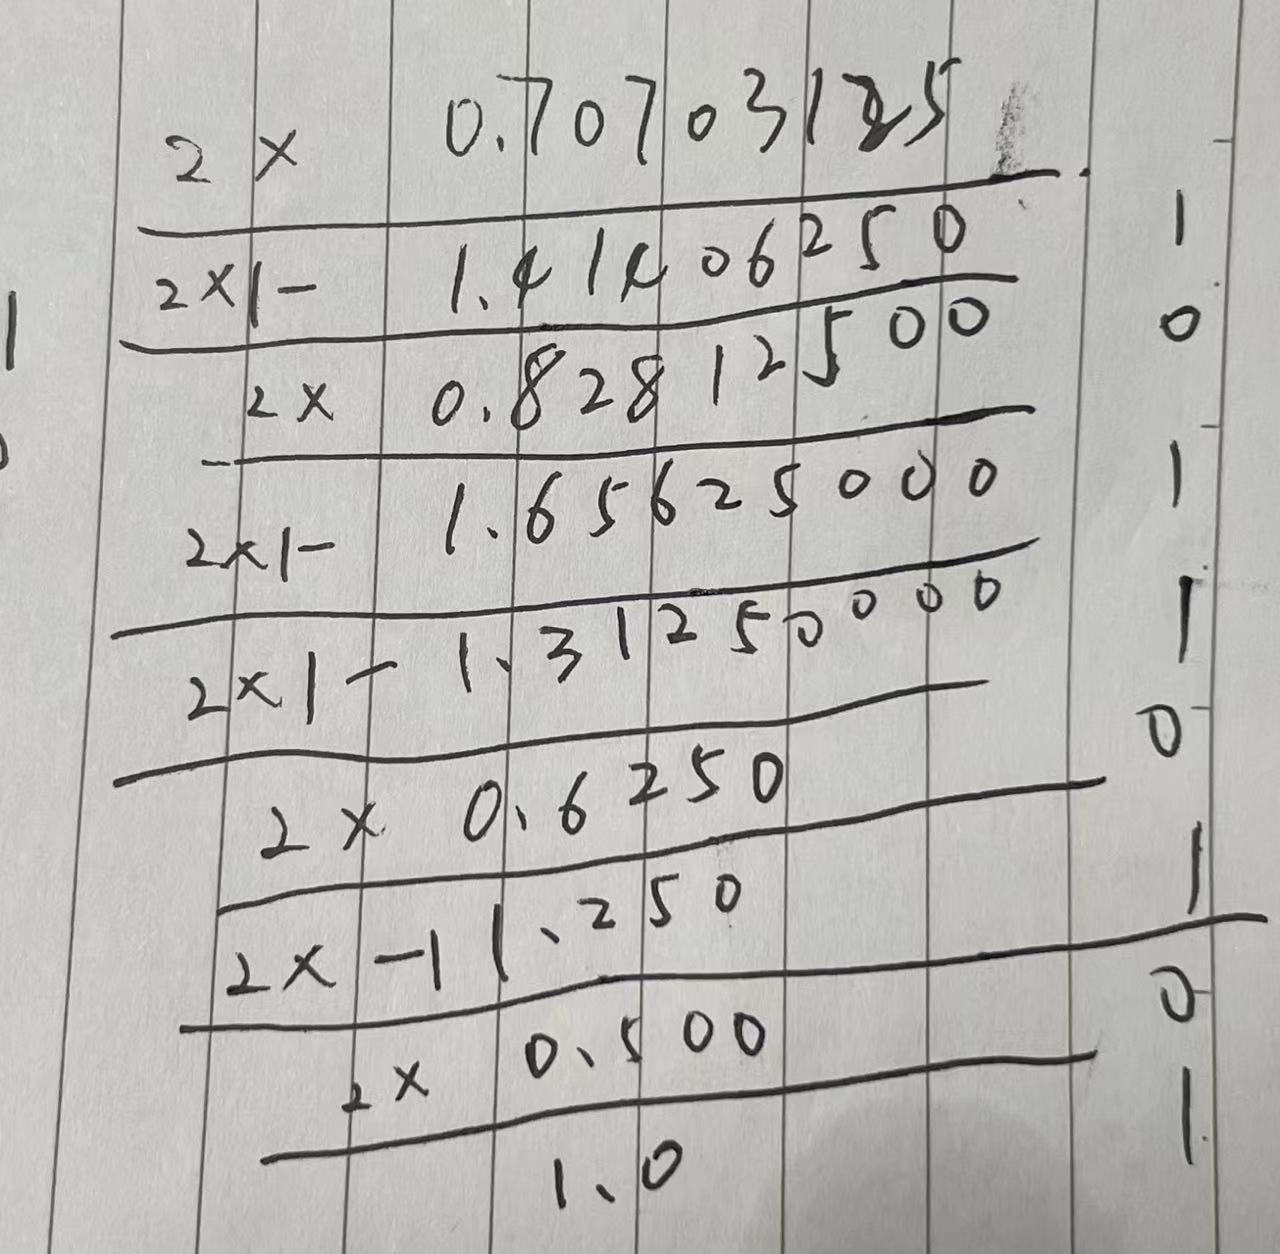 2 × 0.70703125
2×1- 1.41406250 1
2× 0.82812500 0
2×1- 1.65625000 1
2×1- 1.31250000 1
2× 0.6250 0
2× -1 1.250 1
2× 0.500 0
1.0 1